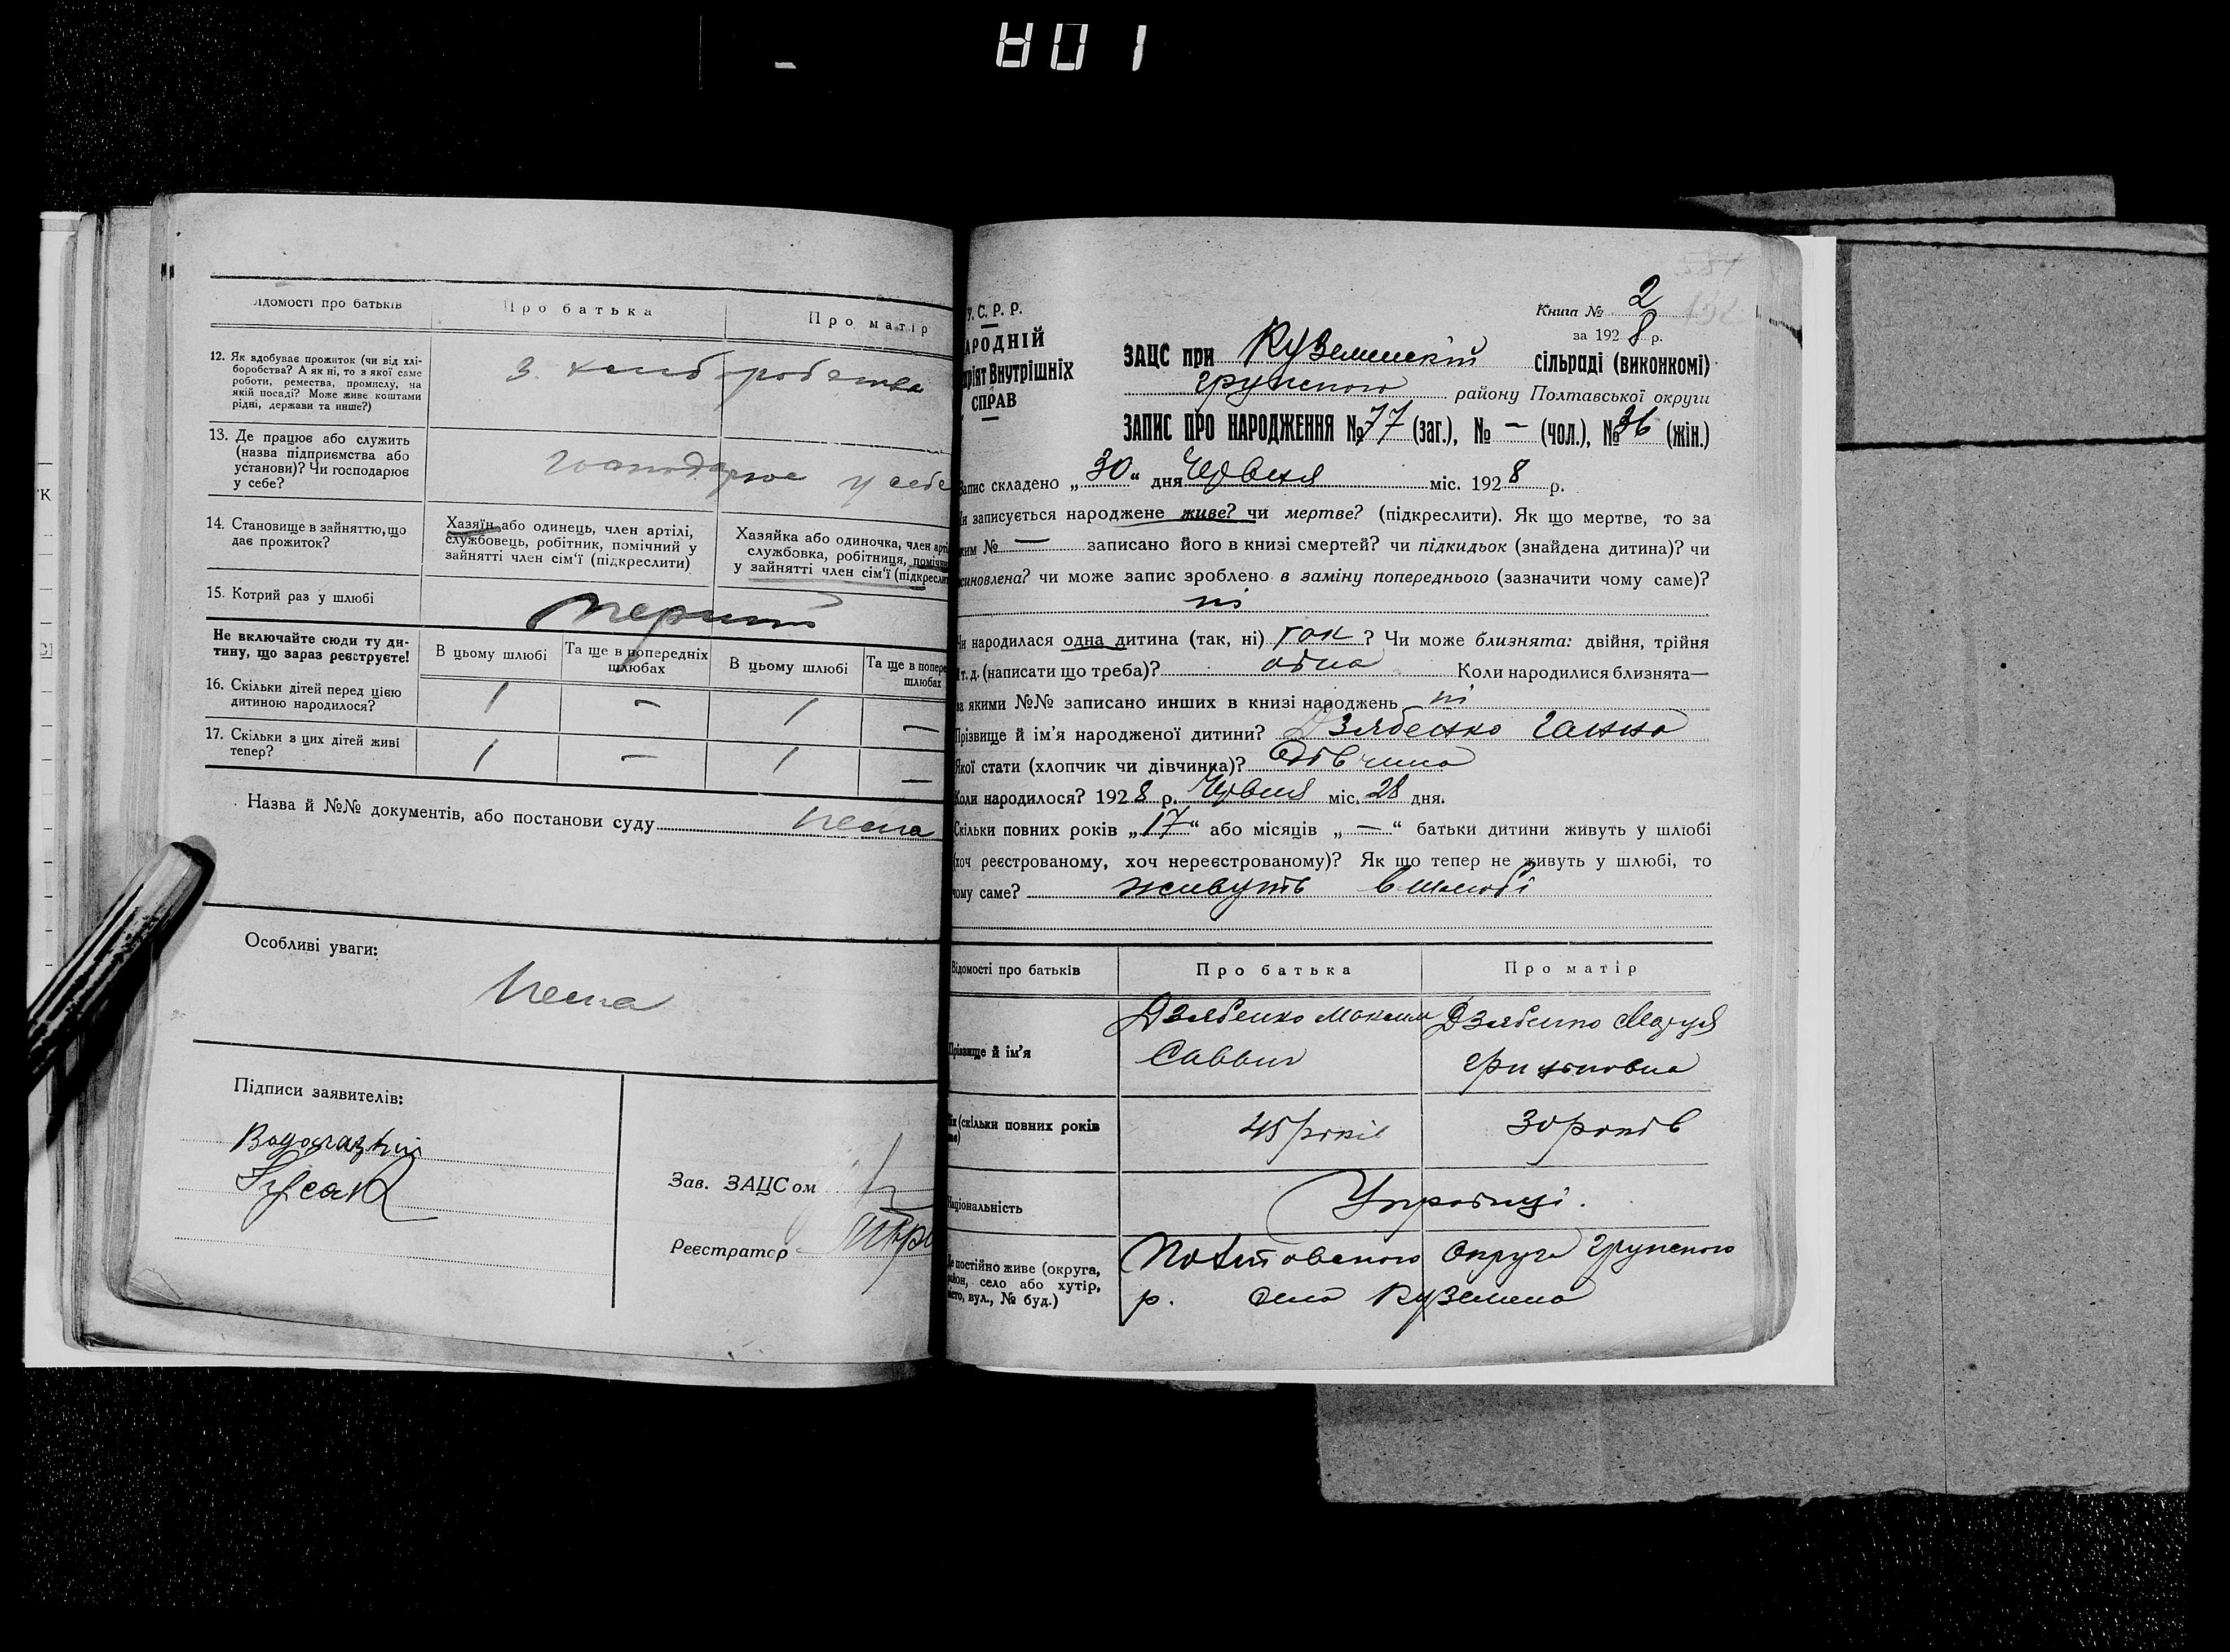 801
Відомості про батьків
Про батька
Про матір
12. Як здобуває прожиток (чи від хлі-
боробства? А як ні, то з якої саме
роботи, ремества, промислу, на
якій посаді? Може живе коштами
рідні, держави та инше?)
З хлиборобства
13. Де працює або служить
(назва підприємства або
установи)? Чи господарює
у себе?
господарює у себе
14. Становище в зайняттю, що
дає прожиток?
Хазяїн або одинець, член артілі,
службовець, робітник, помічний у
зайнятті член сім'ї (підкреслити)
Хазяйка або одиночка, член арті
службовка, робітниця, помічн
у зайнятті член сім'ї (підкресли
15. Котрий раз у шлюбі
перший
Не включайте сюди ту ди-
тину, що зараз реєструєте!
В цьому шлюбі
Та ще в попередніх
шлюбах
В цьому шлюбі
Та ще в попере
шлюбах
16. Скільки дітей перед цією
дитиною народилося?
1 — 1 —
17. Скільки з цих дітей живі
тепер?
1 — 1 —
Назва й №№ документів, або постанови суду нема
Особливі уваги:
Нема
Підписи заявителів:
Зав. ЗАЦСом
Реєстратор
У.С.Р.Р.
АРОДНІЙ
ріят Внутрішніх
СПРАВ
Книга № 2
за 1928 р.
ЗАЦС при Куземенскій сільраді (виконкомі)
Грунского району Полтавської округи
ЗАПИС ПРО НАРОДЖЕННЯ № 77 (заг.), № — (чол.), № 36 (жін.)
Запис складено „30" дня Червня міс. 1928 р.
Чи записується народжене живе? чи мертве? (підкреслити). Як що мертве, то за
яким № — записано його в книзі смертей? чи підкидьок (знайдена дитина)? чи
синовлена? чи може запис зроблено в заміну попереднього (зазначити чому саме)?
ні
Чи народилася одна дитина (так, ні) так ? Чи може близнята: двійня, трійня
і т. д. (написати що треба)? одна Коли народилися близнята—
за якими №№ записано инших в книзі народжень ні
Прізвище й ім'я народженої дитини? Дзябенко Ганна
Якої стати (хлопчик чи дівчинка)? Дівчина
Коли народилося? 1928 р. Червня міс. 28 дня.
Скільки повних років „17" або місяців „—" батьки дитини живуть у шлюбі
(хоч реєстрованому, хоч нереєстрованому)? Як що тепер не живуть у шлюбі, то
чому саме? живуть в шлюбі
Відомості про батьків
Про батька
Про матір
Прізвище й ім'я
Дзябенко Максим
Саввич
Дзябенко Маруся
Вік (скільки повних років
45 років
30 років
Національність
Українці.
Де постійно живе (округа,
район, село або хутір,
місто, вул., № буд.)
Полтовского Округа Грунского
р. село Куземена